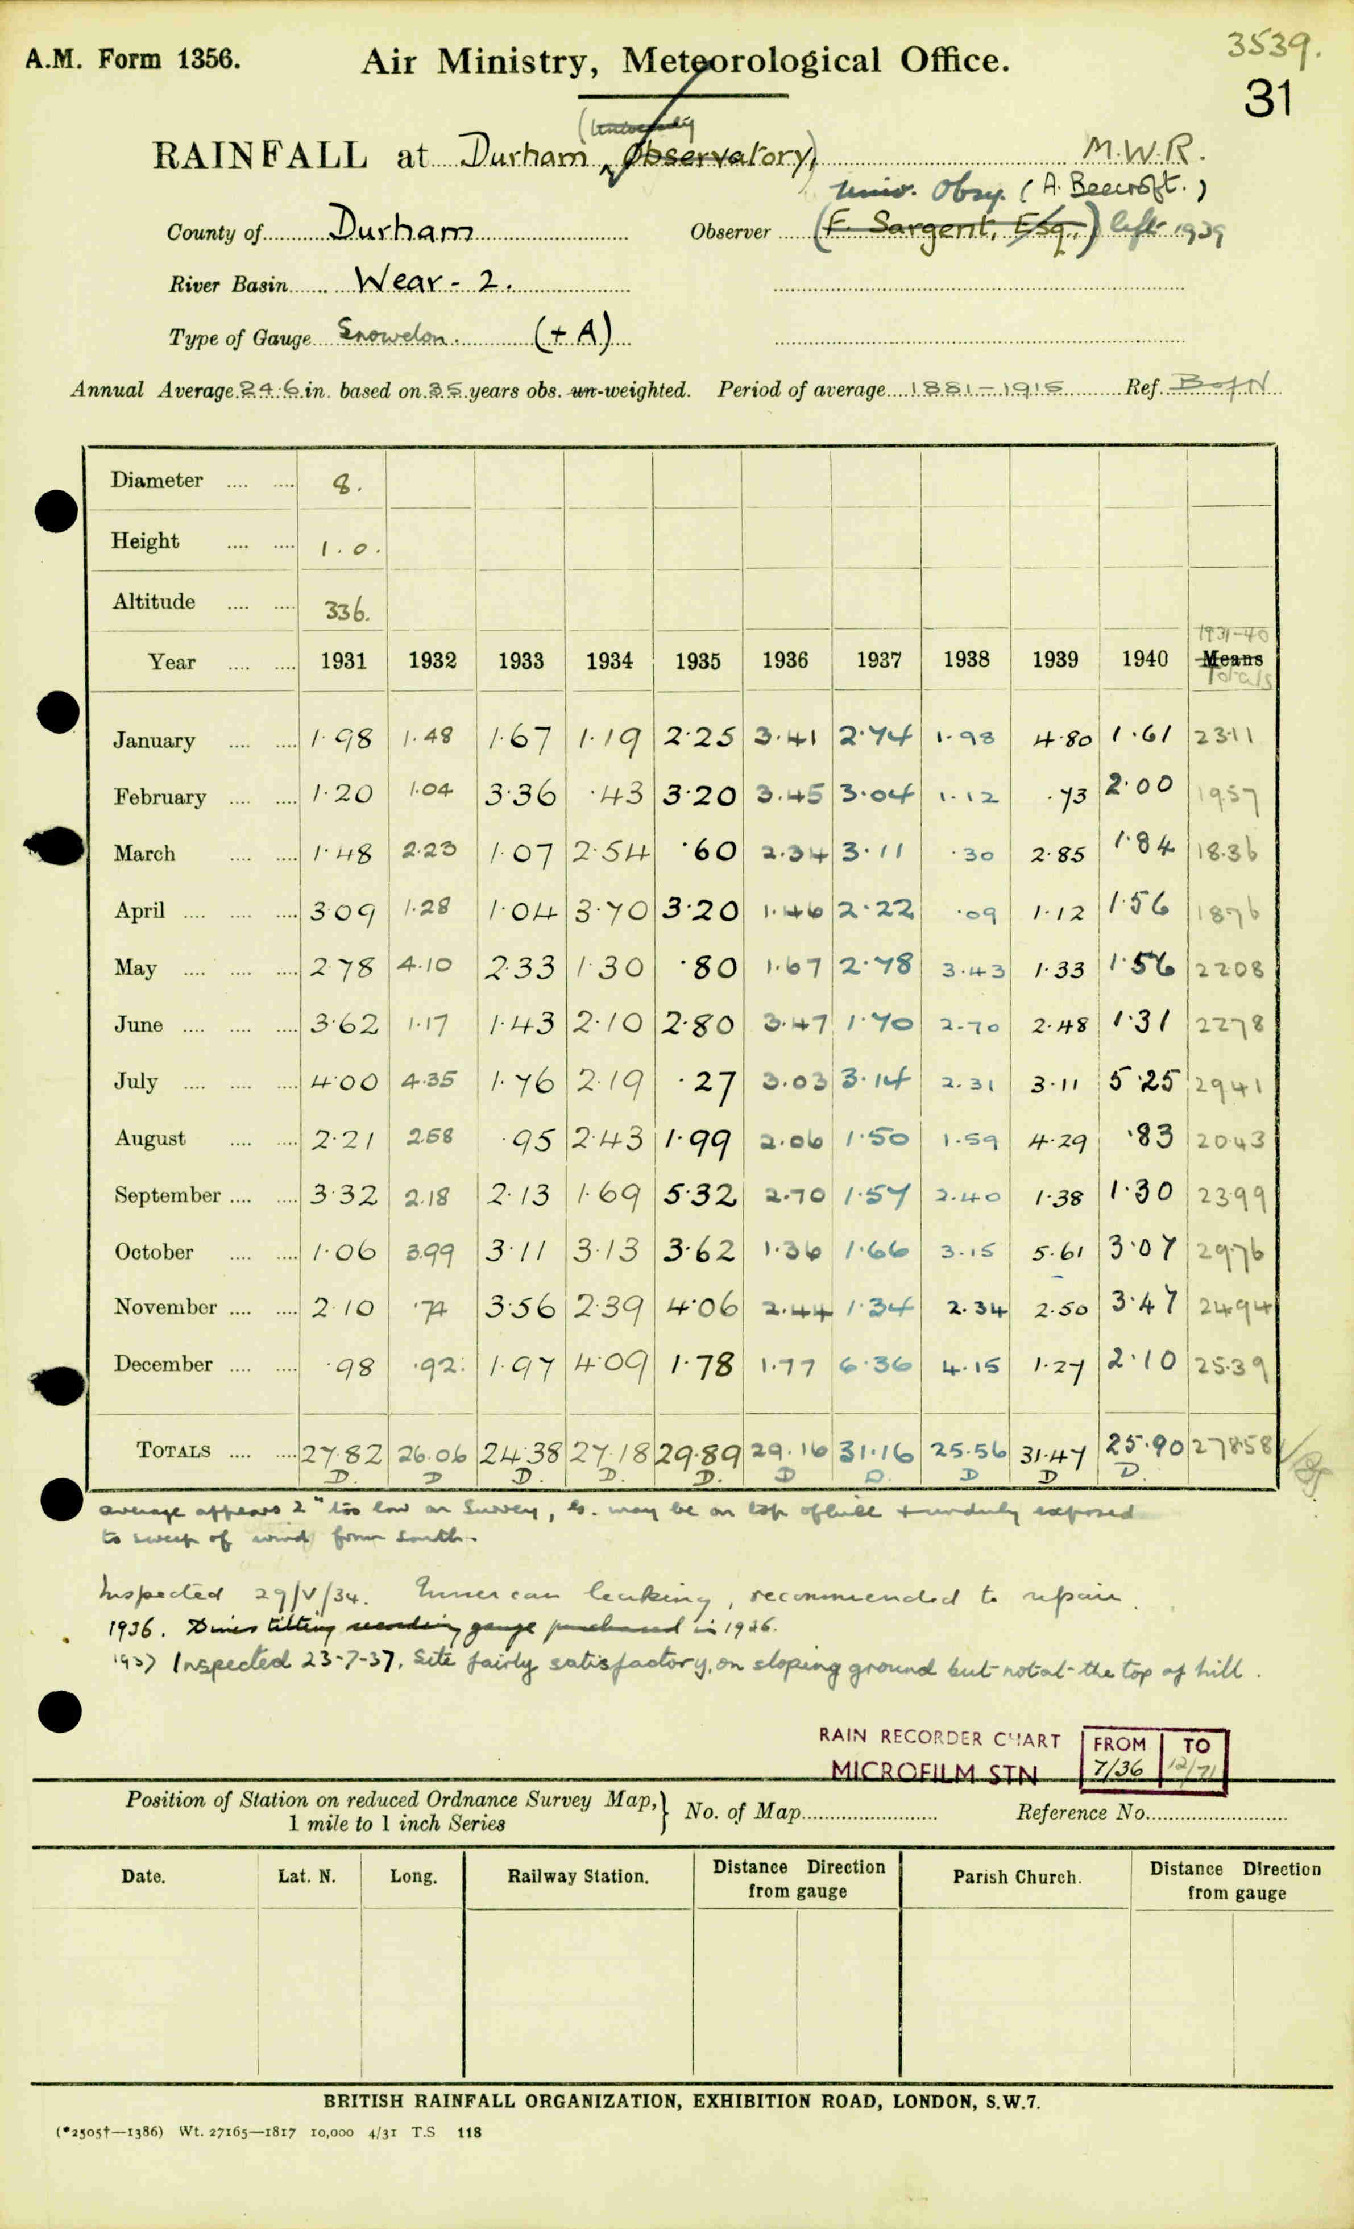 3539.
A.M. Form 1356. Air Ministry, Meteorological Office.
31
(University
RAINFALL at Durham Observatory, M.W.R.
Univ. Obsy. (A. Beecroft.)
County of Durham Observer (F. Sargent, Esq.,) left 1939
River Basin Wear - 2.
Type of Gauge Snowdon. (+ A)
Annual Average 24.6 in. based on 35 years obs. un-weighted. Period of average 1881-1915 Ref. B of N
Diameter .... .... 8.
Height .... .... 1.0.
Altitude .... .... 336.
1931-40
Year .... .... 1931 1932 1933 1934 1935 1936 1937 1938 1939 1940 Means
Totals
January .... .... 1.98 1.48 1.67 1.19 2.25 3.41 2.74 1.98 4.80 1.61 23.11
February .... .... 1.20 1.04 3.36 .43 3.20 3.45 3.04 1.12 .73 2.00 19.57
March .... .... 1.48 2.23 1.07 2.54 .60 2.34 3.11 .30 2.85 1.84 18.36
April .... .... .... 3.09 1.28 1.04 3.70 3.20 1.46 2.22 .09 1.12 1.56 18.76
May .... .... .... 2.78 4.10 2.33 1.30 .80 1.67 2.78 3.43 1.33 1.56 22.08
June .... .... .... 3.62 1.17 1.43 2.10 2.80 3.47 1.70 2.70 2.48 1.31 22.78
July .... .... .... 4.00 4.35 1.76 2.19 .27 3.03 3.14 2.31 3.11 5.25 29.41
August .... .... 2.21 2.58 .95 2.43 1.99 2.06 1.50 1.59 4.29 .83 20.43
September .... .... 3.32 2.18 2.13 1.69 5.32 2.70 1.57 2.40 1.38 1.30 23.99
October .... .... 1.06 3.99 3.11 3.13 3.62 1.36 1.66 3.15 5.61 3.07 29.76
November .... .... 2.10 .74 3.56 2.39 4.06 2.44 1.34 2.34 2.50 3.47 24.94
December .... .... .98 .92 1.97 4.09 1.78 1.77 6.36 4.15 1.27 2.10 25.39
TOTALS .... .... 27.82 26.06 24.38 27.18 29.89 29.16 31.16 25.56 31.47 25.90 278.58
D. D D. D. D. D D. D D D.
average appears 2" too low on Survey, G. may be on top of hill & unduly exposed
to sweep of wind from south.
Inspected 29/V/34. Inner can leaking, recommended to repair.
1936. Dines tilting recording gauge purchased in 1936.
1937 Inspected 23-7-37. Site fairly satisfactory, on sloping ground but not at the top of hill.
RAIN RECORDER CHART FROM TO
MICROFILM STN 7/36 12/71
Position of Station on reduced Ordnance Survey Map,} No. of Map Reference No.
1 mile to 1 inch Series
Date. Lat. N. Long. Railway Station. Distance Direction from gauge Parish Church. Distance Direction from gauge
BRITISH RAINFALL ORGANIZATION, EXHIBITION ROAD, LONDON, S.W.7.
(*2505†—1386) Wt. 27165—1817 10,000 4/31 T.S 118